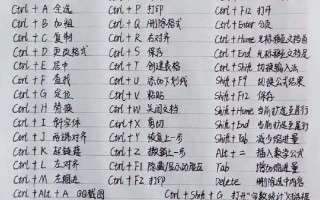 Ctrl + A 全选 Ctrl + P 打印 Ctrl + F12 打开
Ctrl + B 加粗 Ctrl + Q 删除格式 Ctrl + Enter 分页
Ctrl + C 复制 Ctrl + R 右对齐 Ctrl + Home 光标移至文档首
Ctrl + D 更改格式 Ctrl + S 保存 Ctrl + End 光标移至文档
Ctrl + E 居中 Ctrl + T 创建表格 Ctrl + Shift 切换输入法
Ctrl + F 查找 Ctrl + U 添加下划线 Shift + F9 切换公式结果
Ctrl + G 定位 Ctrl + V 粘贴 Shift + F12 保存
Ctrl + H 替换 Ctrl + W 关闭文档 Shift + Home 当前行选至行首
Ctrl + I 斜字体 Ctrl + X 剪切 Shift + End 当前行选至行
Ctrl + J 两端对齐 Ctrl + Y 恢复上一步 Shift + Tab 减少缩进量
Ctrl + K 超链接 Ctrl + Z 撤销上一步 Alt + = 插入数学公式
Ctrl + L 左对齐 Ctrl + F1 隐藏/显示功能区 Tab 增加缩进量
Ctrl + M 左缩进 Ctrl + F2 打印 Delete 删除选中内容
Ctrl + Alt + A QQ截图 Ctrl + Shift + G 打开"字数统计"对话框